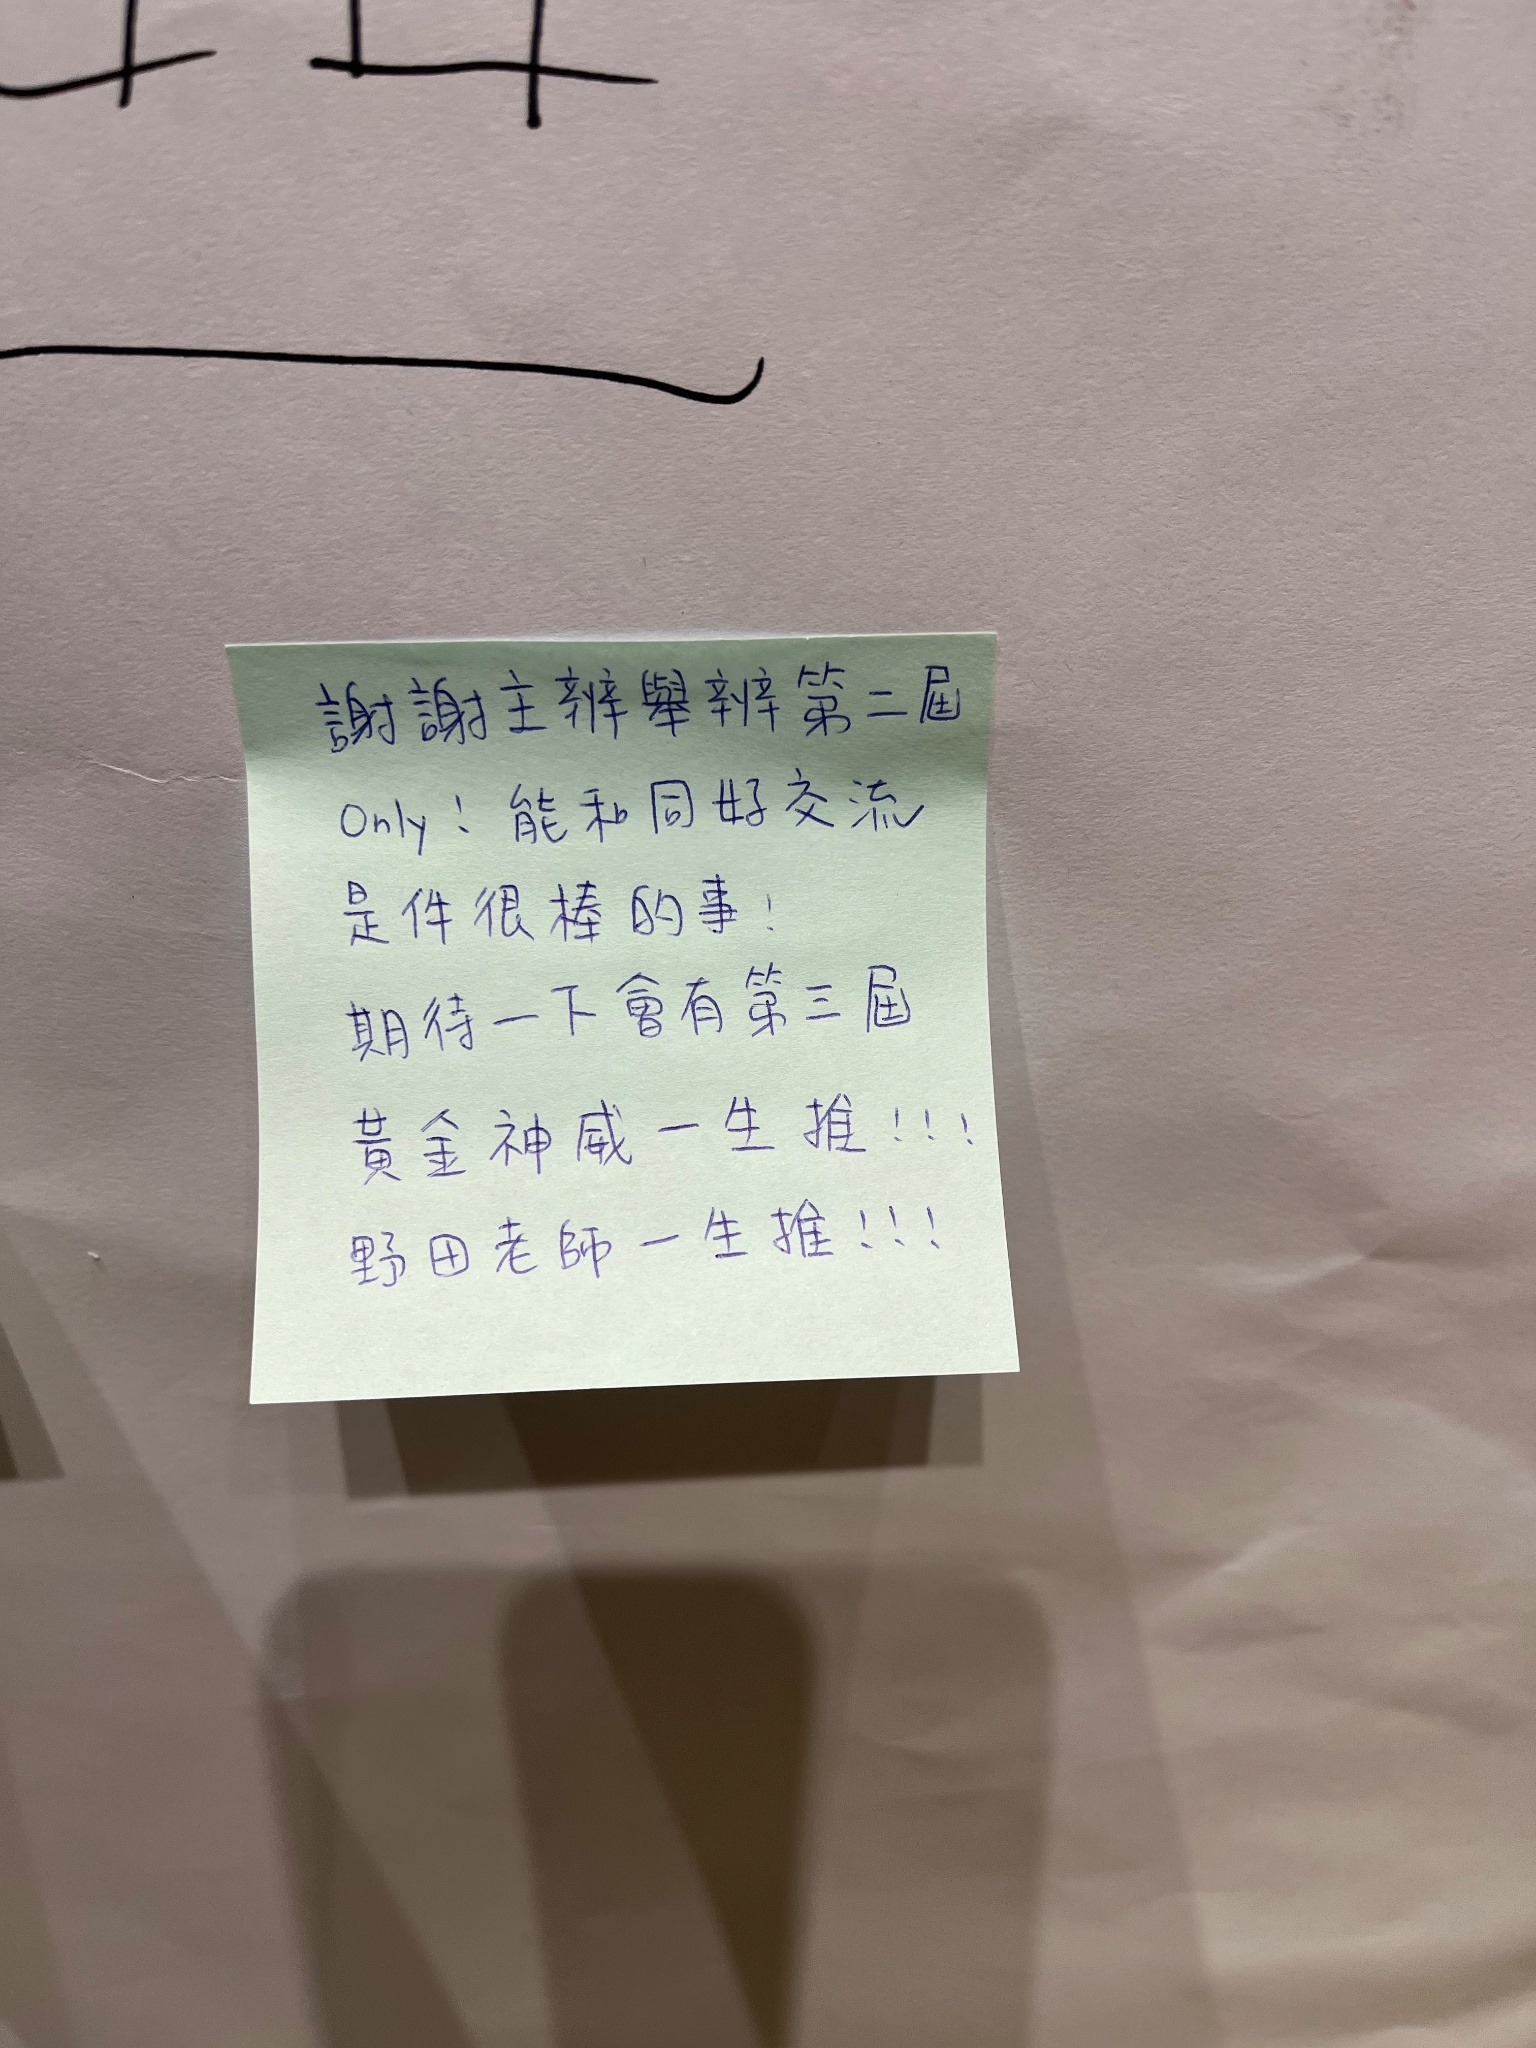 謝謝主辦舉辦第二屆
Only！能和同好交流
是件很棒的事！
期待一下會有第三屆
黃金神威一生推！！！
野田老師一生推！！！